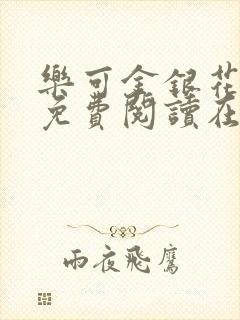 樂可金銀花
免費閱讀在
雨夜飛鷹